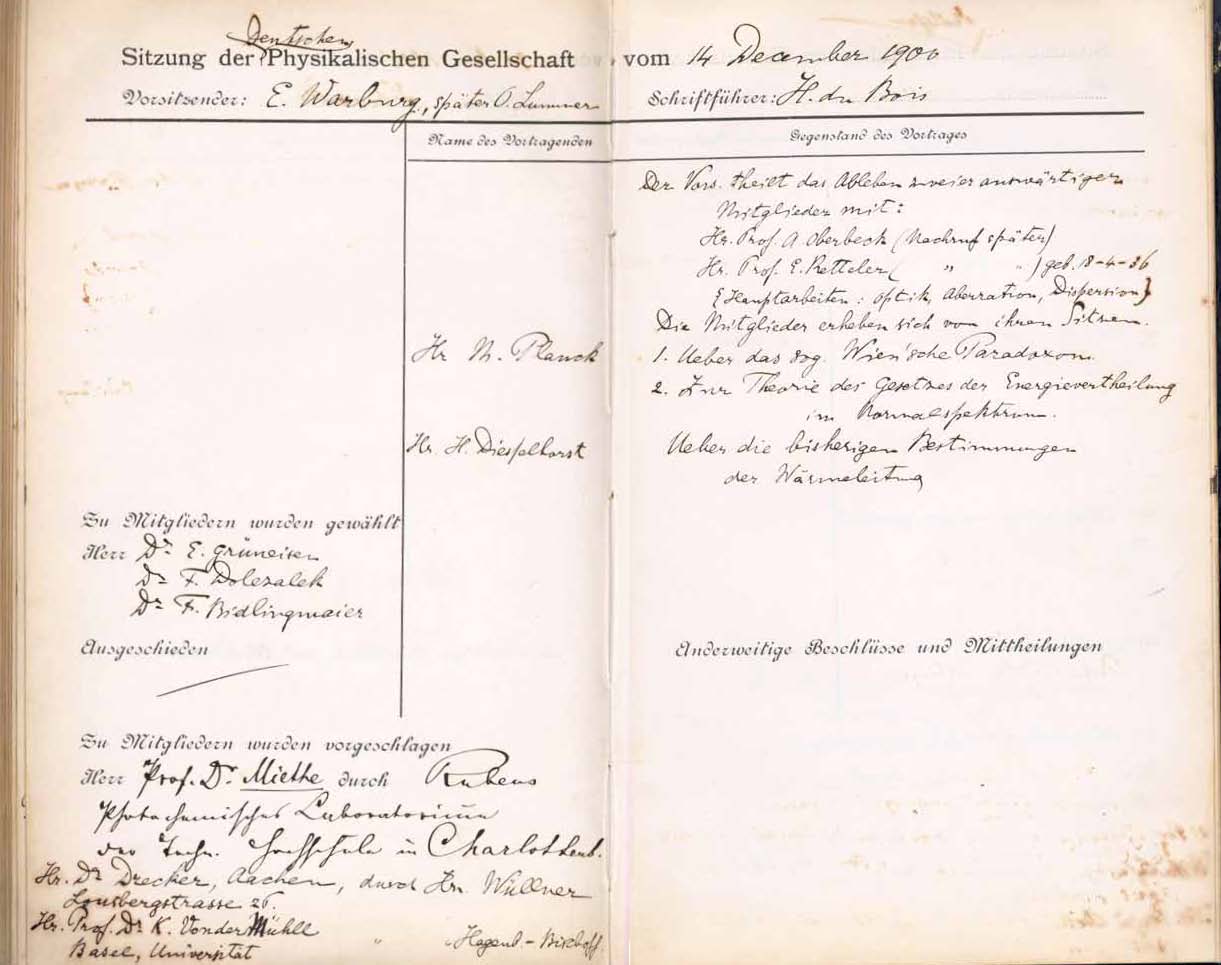 Deutschen
Sitzung der Physikalischen Gesellschaft vom 14 December 1900
Vorsitzender: E. Warburg, später O. Lummer Schriftführer: H. du Bois
Name des Vortragenden Gegenstand des Vortrages
Der Vors. theilt das Ableben zweier auswärtiger
Mitglieder mit:
Hr. Prof. A. Oberbeck (Nachruf später)
Hr. Prof. E. Ketteler ( " " ) geb. 18-4-36
{Hauptarbeiten: Optik, Aberration, Dispersion}
Die Mitglieder erheben sich von ihren Sitzen.
Hr M. Planck 1. Ueber das sog. Wien'sche Paradoxon.
2. Zur Theorie des Gesetzes der Energievertheilung
im Normalspektrum.
Hr. H. Diesselhorst Ueber die bisherigen Bestimmungen
der Wärmeleitung
Zu Mitgliedern wurden gewählt
Herr Dr E. Grüneisen
Dr F. Dolezalek
Dr F. Bidlingmaier
Ausgeschieden
Anderweitige Beschlüsse und Mittheilungen
Zu Mitgliedern wurden vorgeschlagen
Herr Prof. Dr Miethe durch Rubens
Photochemisches Laboratorium
der Techn. Hochschule in Charlottenb.
Hr. Dr Drecker, Aachen, durch Hrn. Wüllner
Lousbergstrasse 26.
Hr. Prof. Dr K. VonderMühll
Basel, Universität " Hagenb.-Bischoff